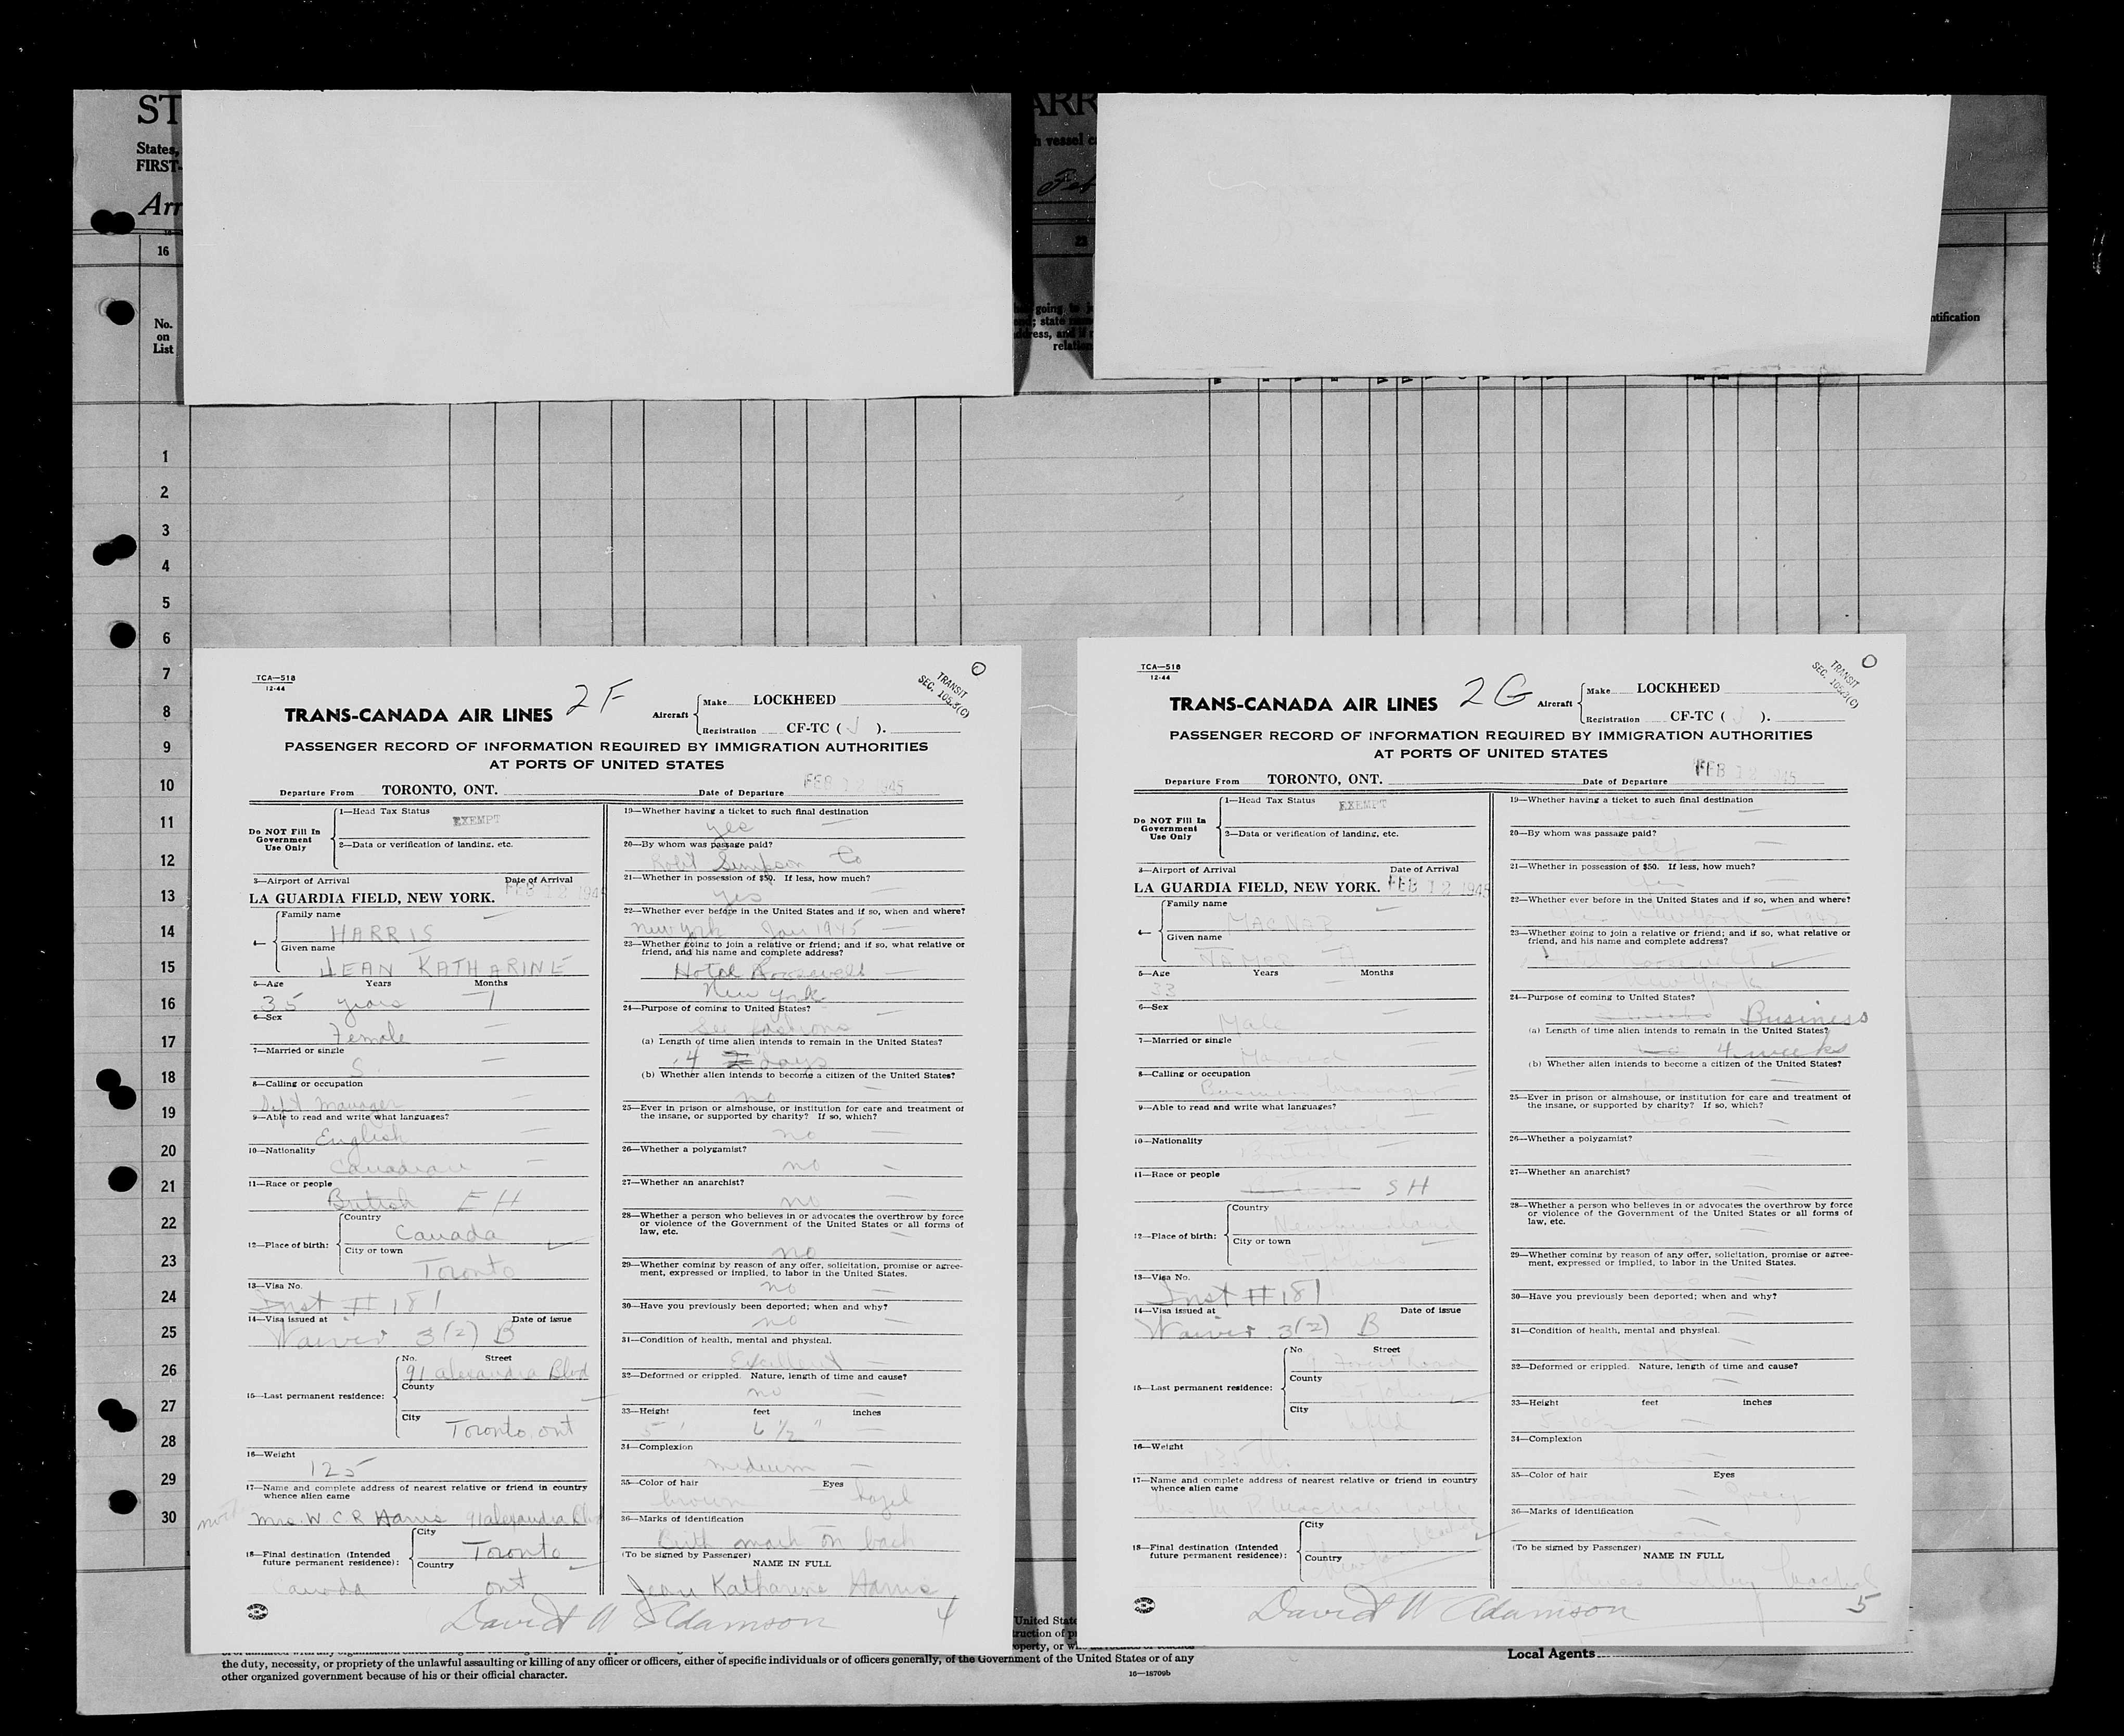 ST
States,
FIRST-
Arr
ARR
h vessel c
Feb
16
22
No.
on
List
going to j
; state
ddress, and if
relation
ntification
1
2
3
4
5
6
7
8
9
10
11
12
13
14
15
16
17
18
19
20
21
22
23
24
25
26
27
28
29
30
TCA—518
12-44
TRANS-CANADA AIR LINES 2F
Aircraft
Make LOCKHEED
Registration CF-TC ( J ).
TRANSIT
SEC. 105.3(C)
PASSENGER RECORD OF INFORMATION REQUIRED BY IMMIGRATION AUTHORITIES
AT PORTS OF UNITED STATES
Departure From TORONTO, ONT. Date of Departure FEB 12 1945
Do NOT Fill In
Government
Use Only
1—Head Tax Status
EXEMPT
2—Data or verification of landing, etc.
3—Airport of Arrival Date of Arrival
LA GUARDIA FIELD, NEW YORK. FEB 12 1945
4—
Family name
HARRIS
Given name
JEAN KATHARINE
5—Age Years Months
35 years —1
6—Sex
Female
7—Married or single
S
8—Calling or occupation
Dept Manager
9—Able to read and write what languages?
English
10—Nationality
Canadian
11—Race or people
British EH
12—Place of birth:
Country
Canada
City or town
Toronto
13—Visa No.
Inst # 181
14—Visa issued at Date of issue
Waiver 3(2) B
15—Last permanent residence:
No. Street
91 Alexandra Blvd
County
City
Toronto, Ont
16—Weight
125
17—Name and complete address of nearest relative or friend in country
whence alien came
Mrs. W. C. R Harris 91 Alexandra Blv
18—Final destination (Intended
future permanent residence):
City
Toronto
Country
Canada Ont
19—Whether having a ticket to such final destination
yes
20—By whom was passage paid?
Robt Simpson Co
21—Whether in possession of $50. If less, how much?
yes
22—Whether ever before in the United States and if so, when and where?
New York Jan 1945
23—Whether going to join a relative or friend; and if so, what relative or
friend, and his name and complete address?
Hotel Roosevelt
New York
24—Purpose of coming to United States?
See fashions
(a) Length of time alien intends to remain in the United States?
4 days
(b) Whether alien intends to become a citizen of the United States?
no
25—Ever in prison or almshouse, or institution for care and treatment of
the insane, or supported by charity? If so, which?
no
26—Whether a polygamist?
no
27—Whether an anarchist?
no
28—Whether a person who believes in or advocates the overthrow by force
or violence of the Government of the United States or all forms of
law, etc.
no
29—Whether coming by reason of any offer, solicitation, promise or agree-
ment, expressed or implied, to labor in the United States.
no
30—Have you previously been deported; when and why?
no
31—Condition of health, mental and physical.
Excellent
32—Deformed or crippled. Nature, length of time and cause?
no
33—Height feet inches
5' 6 1/2"
34—Complexion
medium
35—Color of hair Eyes
brown hazel
36—Marks of identification
Birth mark on back
(To be signed by Passenger)
NAME IN FULL
Jean Katharine Harris
David W Adamson 4
TCA—518
12-44
TRANS-CANADA AIR LINES 2G
Aircraft
Make LOCKHEED
Registration CF-TC ( J ).
TRANSIT
SEC. 105.3(C)
PASSENGER RECORD OF INFORMATION REQUIRED BY IMMIGRATION AUTHORITIES
AT PORTS OF UNITED STATES
Departure From TORONTO, ONT. Date of Departure FEB 12 1945
Do NOT Fill In
Government
Use Only
1—Head Tax Status
EXEMPT
2—Data or verification of landing, etc.
3—Airport of Arrival Date of Arrival
LA GUARDIA FIELD, NEW YORK. FEB 12 1945
4—
Family name
MACNAB
Given name
JAMES A
5—Age Years Months
33
6—Sex
Male
7—Married or single
Married
8—Calling or occupation
Business Manager
9—Able to read and write what languages?
English
10—Nationality
British
11—Race or people
SH
12—Place of birth:
Country
Newfoundland
City or town
St Johns
13—Visa No.
Inst # 181
14—Visa issued at Date of issue
Waiver 3(2) B
15—Last permanent residence:
No. Street
Forest Road
County
St Johns
City
Nfld
16—Weight
135
17—Name and complete address of nearest relative or friend in country
whence alien came
18—Final destination (Intended
future permanent residence):
City
Country
Newfoundland
19—Whether having a ticket to such final destination
yes
20—By whom was passage paid?
self
21—Whether in possession of $50. If less, how much?
yes
22—Whether ever before in the United States and if so, when and where?
New York
23—Whether going to join a relative or friend; and if so, what relative or
friend, and his name and complete address?
Hotel Roosevelt
New York
24—Purpose of coming to United States?
Business
(a) Length of time alien intends to remain in the United States?
4 weeks
(b) Whether alien intends to become a citizen of the United States?
25—Ever in prison or almshouse, or institution for care and treatment of
the insane, or supported by charity? If so, which?
26—Whether a polygamist?
27—Whether an anarchist?
28—Whether a person who believes in or advocates the overthrow by force
or violence of the Government of the United States or all forms of
law, etc.
29—Whether coming by reason of any offer, solicitation, promise or agree-
ment, expressed or implied, to labor in the United States.
30—Have you previously been deported; when and why?
31—Condition of health, mental and physical.
32—Deformed or crippled. Nature, length of time and cause?
33—Height feet inches
34—Complexion
35—Color of hair Eyes
36—Marks of identification
(To be signed by Passenger)
NAME IN FULL
David W Adamson 5
United State
truction of p
operty, or w
the duty, necessity, or propriety of the unlawful assaulting or killing of any officer or officers, either of specific individuals or of officers generally, of the Government of the United States or of any
other organized government because of his or their official character.
16—18709b
Local Agents